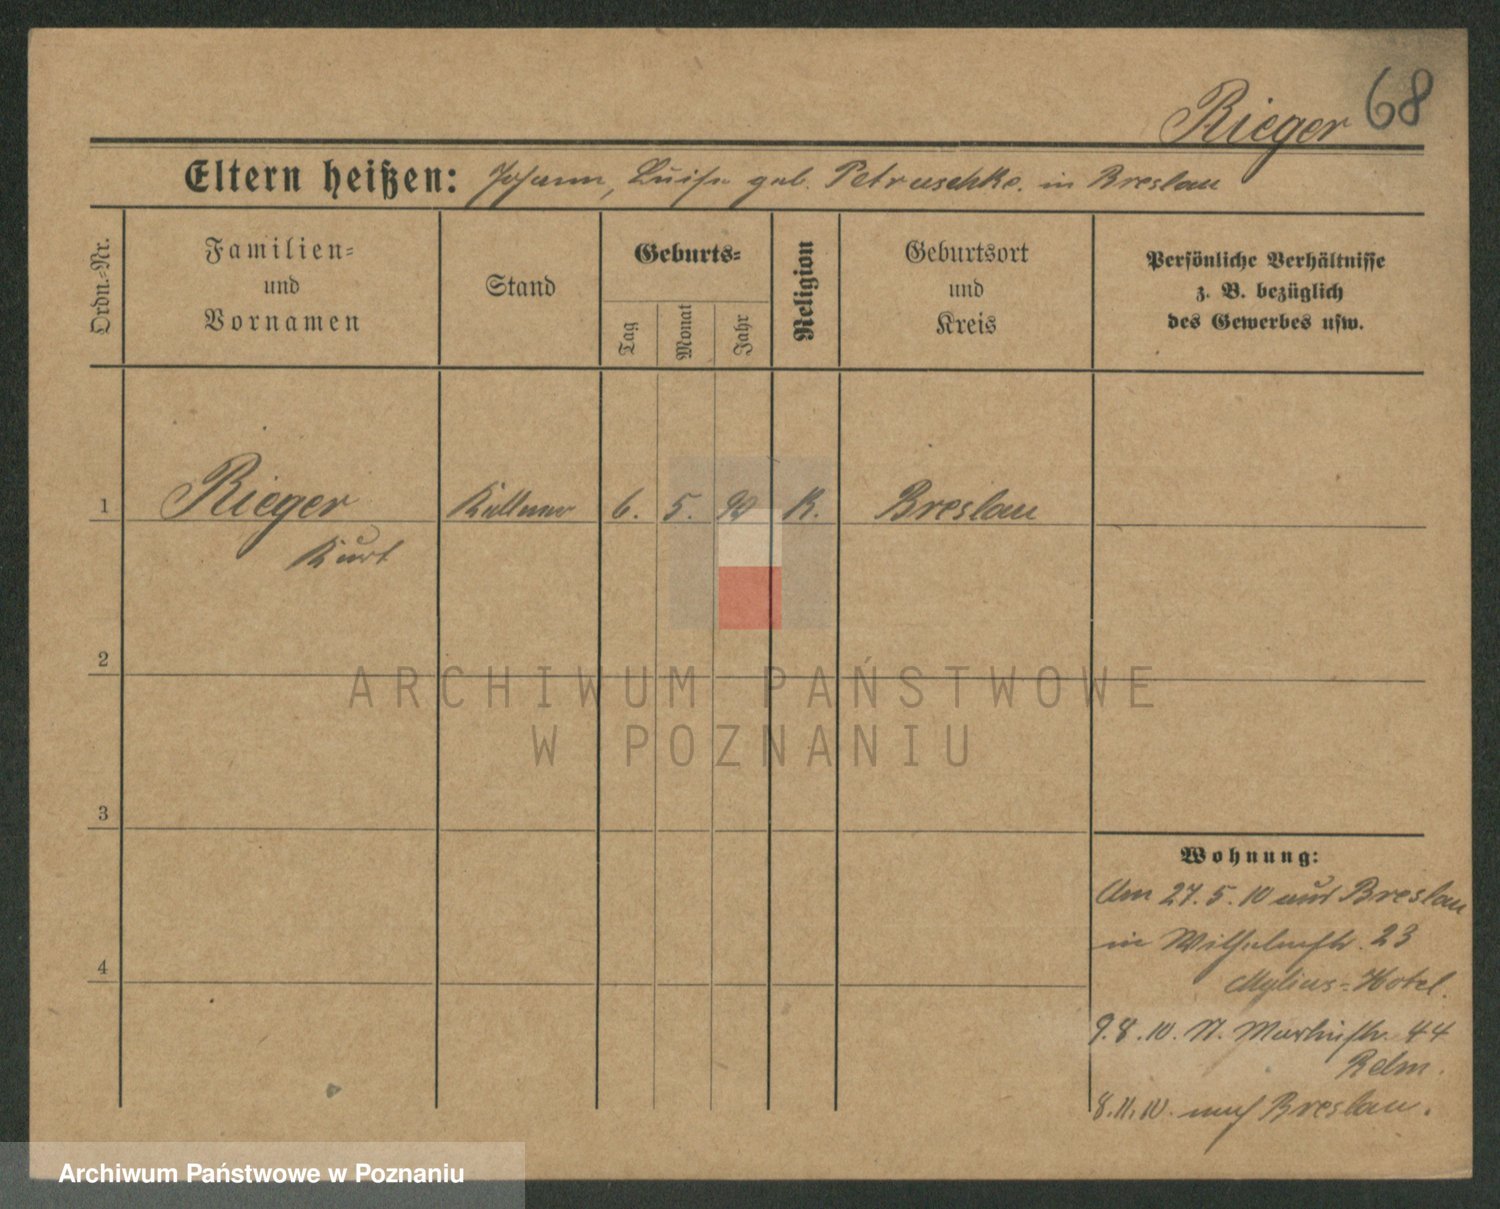 Rieger 68
Eltern heißen: Johann, Luise geb. Petruschke. in Breslau
Ordn.-Nr.
Familien-
und
Vornamen
Stand
Geburts-
Tag
Monat
Jahr
Religion
Geburtsort
und
Kreis
Persönliche Verhältnisse
z. B. bezüglich
des Gewerbes usw.
1 Rieger Kellner 6. 5. 90 K. Breslau
Kurt
2
ARCHIWUM PAŃSTWOWE
W POZNANIU
3
Wohnung:
Am 27.5.10 aus Breslau
in Wilhelmstr. 23
Mylius-Hotel.
4
9.8.10. St. Martinstr. 44
8.11.10. nach Breslau.
Archiwum Państwowe w Poznaniu